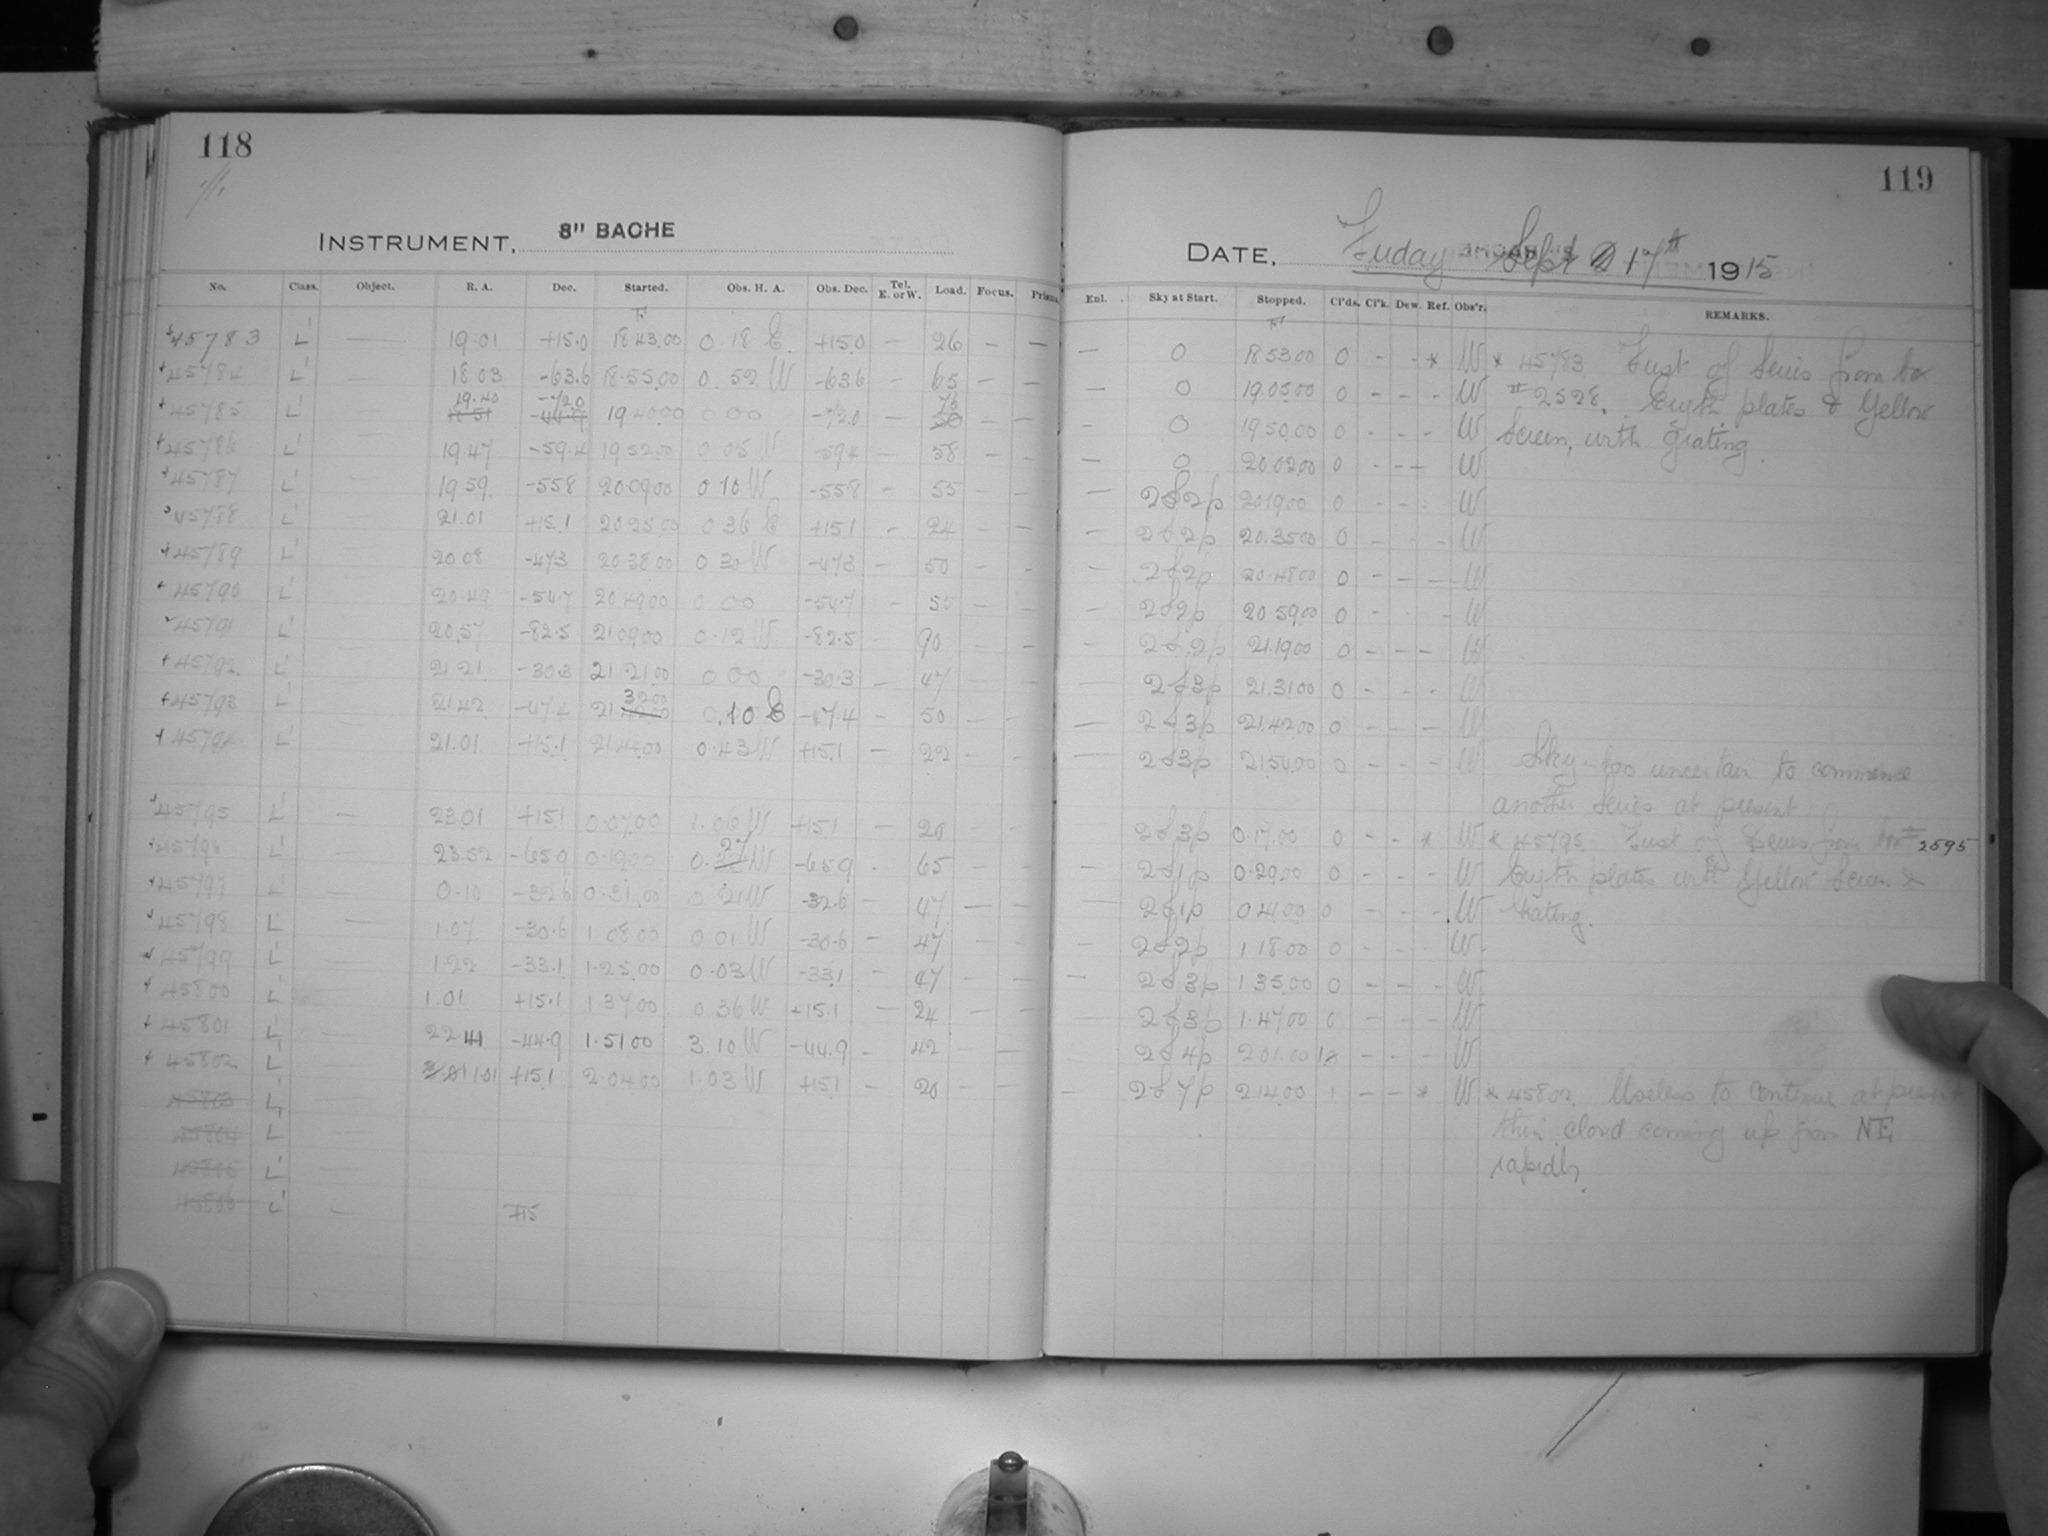 118
INSTRUMENT, 8" BACHE
No. Class. Object. R. A. Dec. Started. Obs. H. A. Obs. Dec. Tel. E. or W. Load. Focus. Prisms
45783 L' — 19.01 +15.0 18.43.00 0.18 E. +15.0 — 26 — —
45784 L' — 18.03 -63.6 18.55.00 0.52 W -63.6 — 65 — —
45785 L' — 19.40 -72.0 19.40.00 0.00 -72.0 — 76 — —
45786 L' — 19.47 -59.4 19.52.00 0.05 W -59.4 — 58 — —
45787 L' — 19.59 -55.8 20.09.00 0.10 W -55.8 — 55 — —
45788 L' — 21.01 +15.1 20.25.00 0.36 E +15.1 - 24 — —
45789 L' — 20.08 -47.3 20.38.00 0.30 W -47.3 — 50 — —
45790 L' — 20.49 -54.7 20.49.00 0.00 -54.7 — 55 — —
45791 L' — 20.57 -82.5 21.09.00 0.12 W -82.5 — 90 — —
45792 L' — 21.21 -30.3 21.21.00 0.00 -30.3 — 47 — —
45793 L' — 21.42 -47.4 21.32.00 0.10 E -47.4 — 50 — —
45794 L' — 21.01 +15.1 21.44.00 0.43 W +15.1 — 22 — —
45795 L' — 23.01 +15.1 0.07.00 1.06 W +15.1 — 20 — —
45796 L' — 23.52 -65.9 0.19.00 0.27 W -65.9 . 65 — —
45797 L' — 0.10 -32.6 0.31.00 0.21 W -32.6 — 47 — —
45798 L' — 1.07 -30.6 1.08.00 0.01 W -30.6 — 47 — —
45799 L' — 1.22 -33.1 1.25.00 0.03 W -33.1 — 47 — —
45800 L' — 1.01 +15.1 1.37.00 0.36 W +15.1 — 24 — —
45801 L' — 22.41 -44.9 1.51.00 3.10 W -44.9 — 42 — —
45802 L' — 1.01 +15.1 2.04.00 1.03 W +15.1 — 20 — —
45803 L' —
45804 L' —
45805 L' —
45806 L' — +15
119
DATE, Friday Sept 17th 1915
Enl. Sky at Start. Stopped. Cl'ds. Cl'k. Dew. Ref. Obs'r. REMARKS.
— 0 18.53.00 0 - - * W * 45783 First of Series from box
— 0 19.05.00 0 - - - W # 2528. Eryth. plates & Yellow
- 0 19.50.00 0 - - - W Screen, with Grating.
— 0 20.02.00 0 - - — W
— 2 d 2 p 20.19.00 0 - - - W
— 2 d 2 p 20.35.00 0 - - - W
— 2 d 2 p 20.48.00 0 - - — W
— 2 d 2 p 20.59.00 0 - - - W
— 2 d 2 p 21.19.00 0 - - - W
— 2 d 3 p 21.31.00 0 - - - W
— 2 d 3 p 21.42.00 0 - - - W
— 2 d 3 p 21.54.00 0 - - - W Sky too uncertain to commence
another series at present
2 d 3 p 0.17.00 0 - - * W * 45795 First of Series from box # 2595
2 d 1 p 0.29.00 0 - - - W Eryth plates with Yellow Screen &
2 d 1 p 0.41.00 0 - - - W Grating.
2 d 2 p 1.18.00 0 - - - W
— 2 d 3 p 1.35.00 0 - - - W
— 2 d 3 p 1.47.00 0 - - - W
2 d 4 p 2.01.00 - - - W
— 2 d 7 p 2.14.00 1 - - * W * 45802. Useless to continue at present
thin cloud coming up from NE
rapidly.